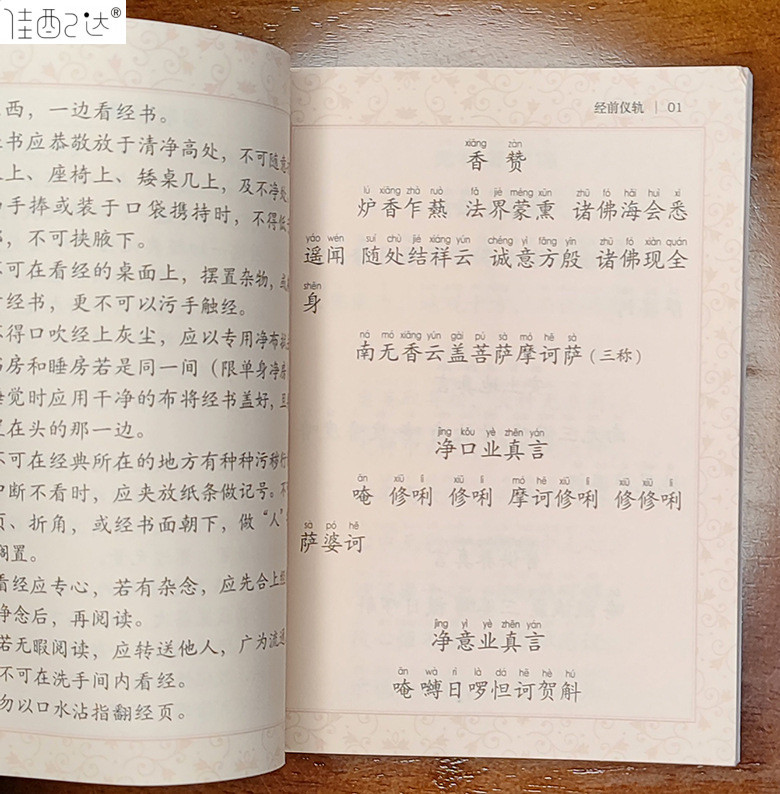 佳配达®
西，一边看经书。
书应恭敬放于清净高处，不可随意
上、座椅上、矮桌几上，及不净处
手捧或装于口袋携持时，不得低
，不可挟腋下。
不可在看经的桌面上，摆置杂物，或
经书，更不可以污手触经。
不得口吹经上灰尘，应以专用净布
房和睡房若是同一间（限单身净
睡觉时应用干净的布将经书盖好，且
在头的那一边。
不可在经典所在的地方有种种污秽行
中断不看时，应夹放纸条做记号。不
页、折角，或经书面朝下，做“人”
搁置。
看经应专心，若有杂念，应先合上经
净念后，再阅读。
若无暇阅读，应转送他人，广为流通
不可在洗手间内看经。
勿以口水沾指翻经页。
经前仪轨 | 01
xiāng zàn
香赞
lú xiāng zhà ruò fǎ jiè méng xūn zhū fó hǎi huì xī
炉香乍爇 法界蒙熏 诸佛海会悉
yáo wén suí chù jié xiáng yún chéng yì fāng yīn zhū fó xiàn quán
遥闻 随处结祥云 诚意方殷 诸佛现全
shēn
身
ná mó xiāng yún gài pú sà mó hē sà
南无香云盖菩萨摩诃萨（三称）
jìng kǒu yè zhēn yán
净口业真言
ǎn xiū lì xiū lì mó hē xiū lì xiū xiū lì
唵 修唎 修唎 摩诃修唎 修修唎
sà pó hē
萨婆诃
jìng yì yè zhēn yán
净意业真言
ǎn wà rì là dá hē hè hú
唵 嚩日啰怛诃贺斛